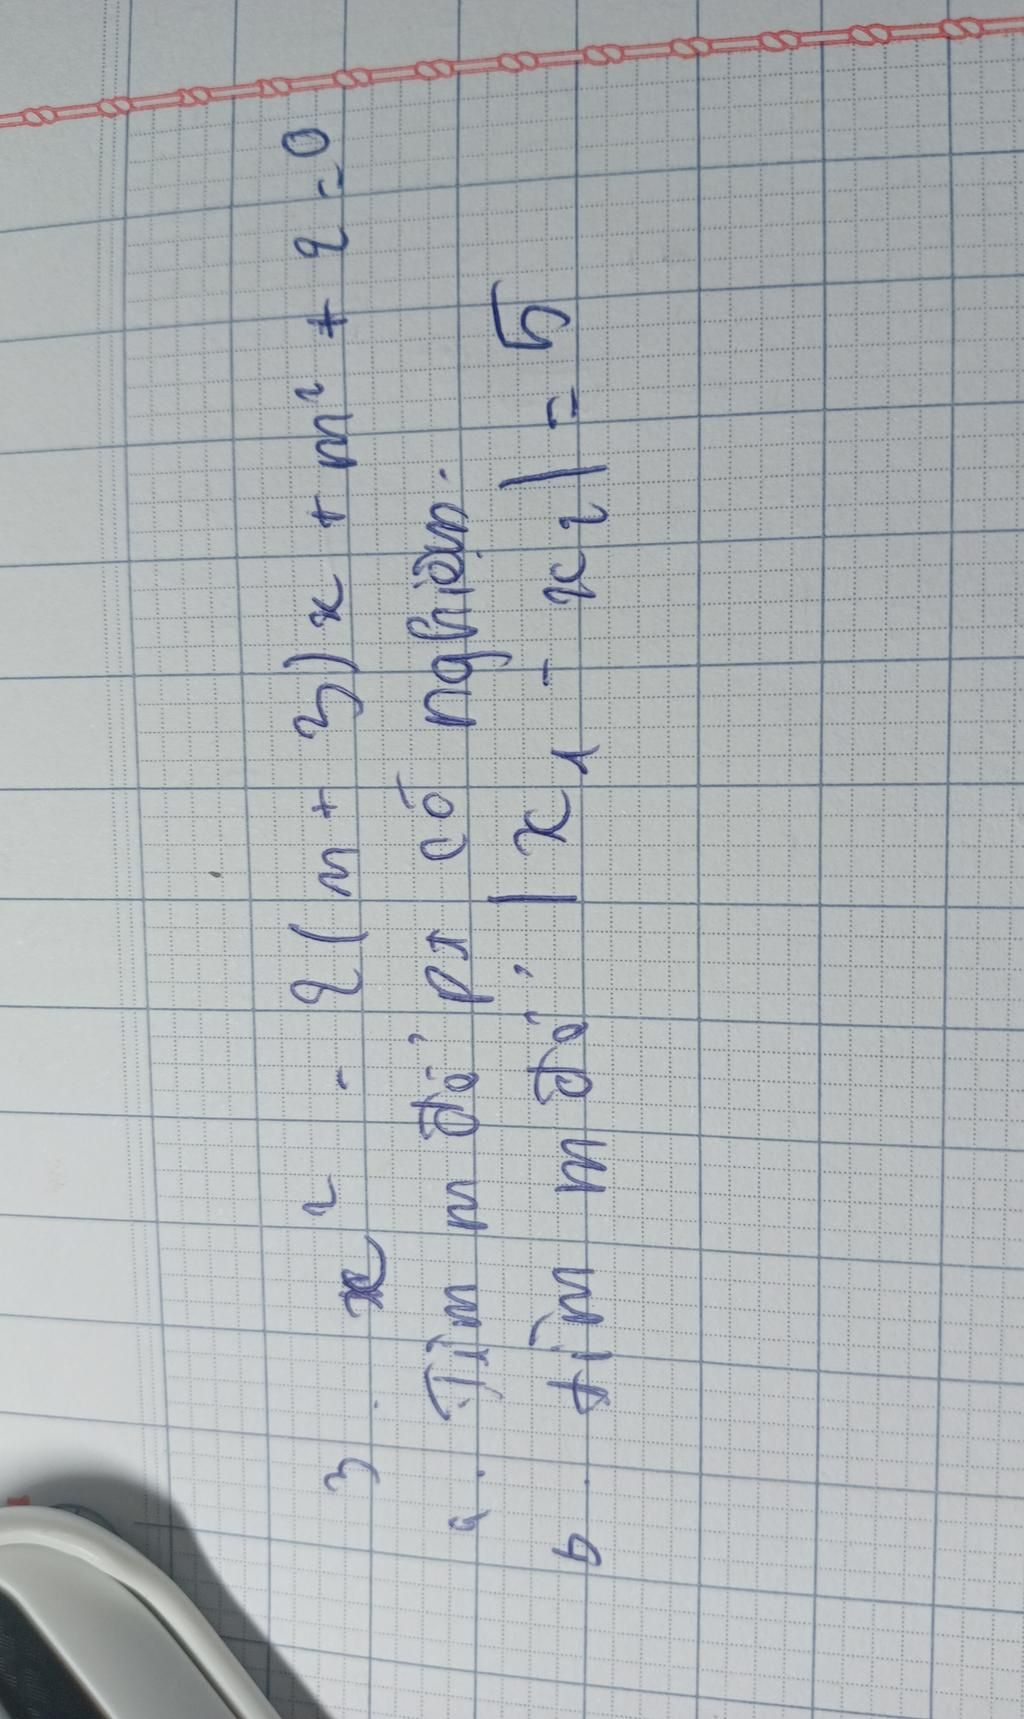 3. x² - 2(m + 3)x + m² + 2 = 0
a. Tìm m để PT có nghiệm.
b. tìm m để |x₁ - x₂| = 5